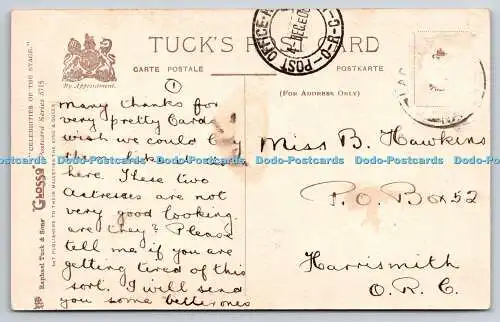 TUCK'S POST CARD
CARTE POSTALE
POSTKARTE
By Appointment.
(FOR ADDRESS ONLY)
POST OFFICE
O-R-C
"CELEBRITIES OF THE STAGE."
"Glosso" Postcard Series 5715
Raphael Tuck & Sons'
ART PUBLISHERS TO THEIR MAJESTIES THE KING & QUEEN
1
many thanks for
very pretty Cards
wish we could buy
the like
here. These two
actresses are not
very good looking.
are they? Please
tell me if you are
getting tired of this
sort. I will send
you some better ones
Miss B. Hawkins
P. O. Box 52
Harrismith
O. R. C.
Dodo-Postcards Dodo-Postcards Dodo-Postcards Dodo-Postcards Dodo-Postcards